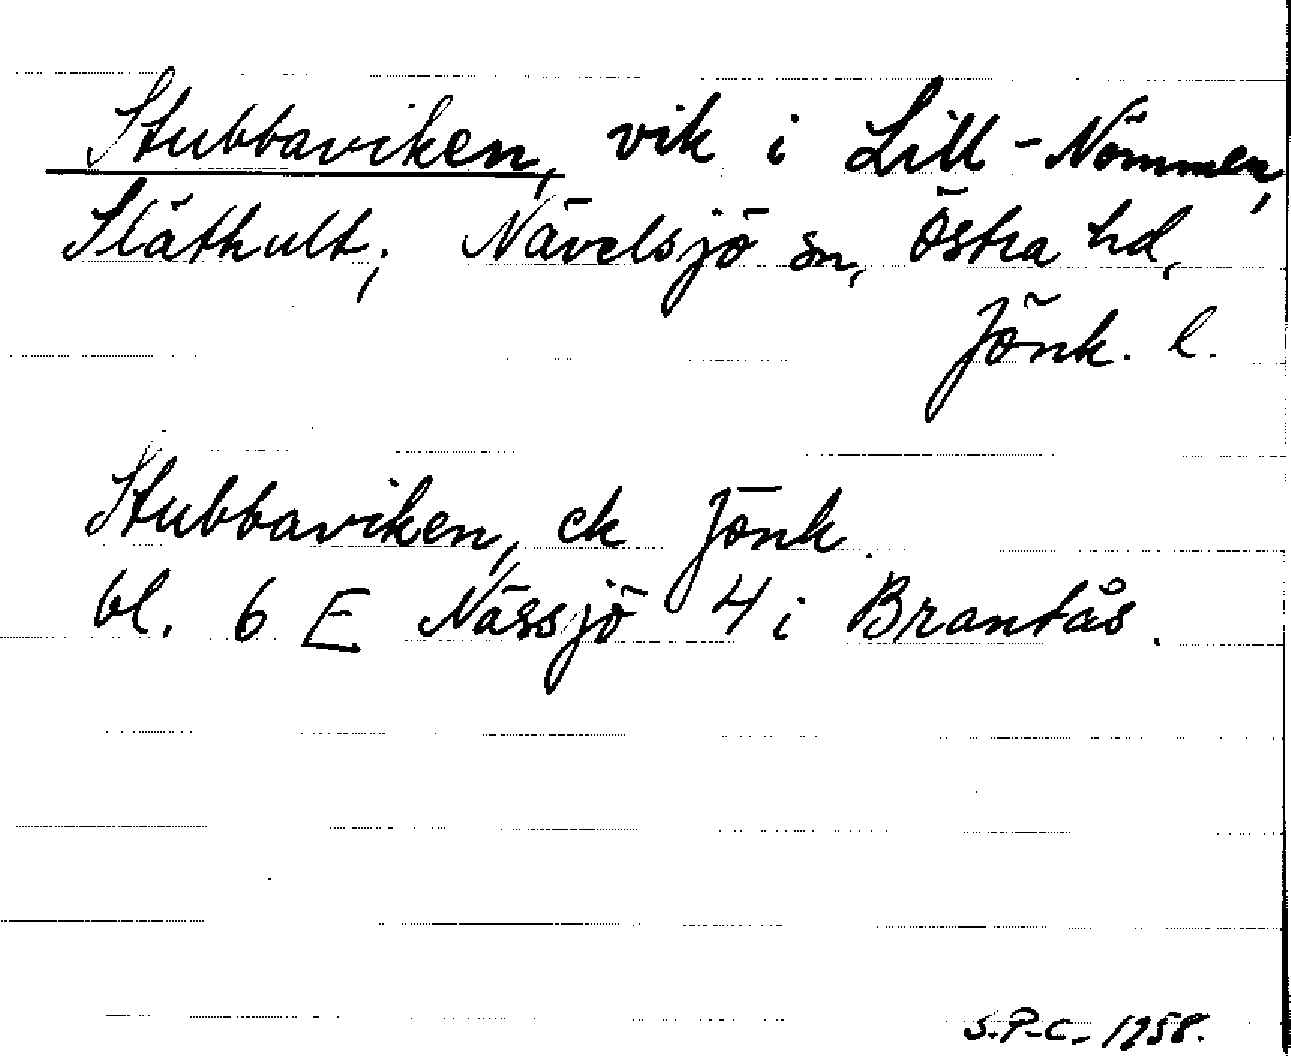 Stubbaviken, vik i Lill-Nömmen,
Släthult, Nävelsjö sn, Östra hd,
Jönk. l.
Stubbaviken, ek Jönk.
bl. 6 E Nässjö 4 i Brantås.
S.P.C. 1958.